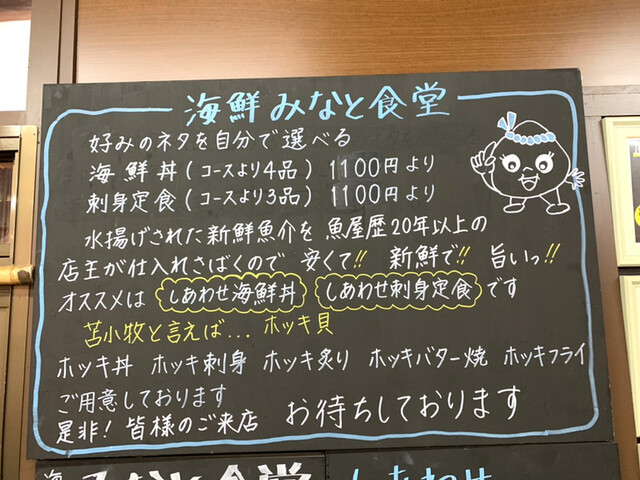 海鮮みなと食堂
好みのネタを自分で選べる
海鮮丼(コースより4品) 1100円より
刺身定食(コースより3品) 1100円より
水揚げされた新鮮魚介を 魚屋歴20年以上の
店主が仕入れさばくので 安くて!! 新鮮で!! 旨いっ!!
オススメは しあわせ海鮮丼 しあわせ刺身定食 です
苫小牧と言えば... ホッキ貝
ホッキ丼 ホッキ刺身 ホッキ炙り ホッキバター焼 ホッキフライ
ご用意しております
是非! 皆様のご来店 お待ちしております